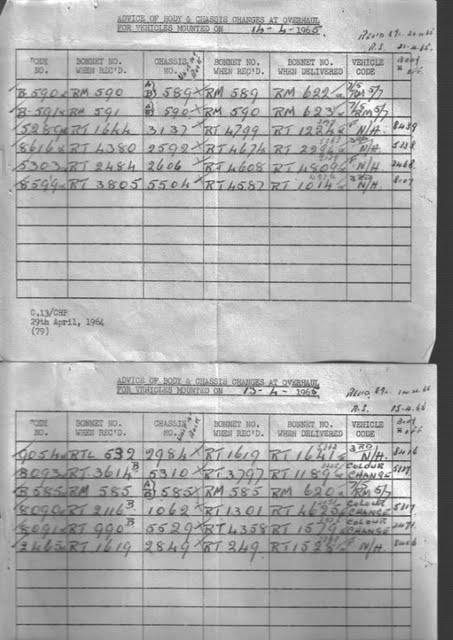 ADVICE OF BODY & CHASSIS CHANGES AT OVERHAUL
FOR VEHICLES MOUNTED ON 14-4-1965
BODY NO. BONNET NO. WHEN REC'D. CHASSIS NO. BONNET NO. WHEN REC'D. BONNET NO. WHEN DELIVERED VEHICLE CODE
B590 RM 590 589 RM 589 RM 622 7/5 RM 5/7
B591 RM 591 590 RM 590 RM 623 7/5 RM 5/7
5289 RT 1644 3137 RT 4799 RT N/H
8616 RT 4380 2592 RT 4674 RT N/H
5303 RT 2484 2606 RT 4608 RT N/H
8599 RT 3805 5504 RT 4587 RT 1014 3RD N/H
C.13/CHP
29th April, 1964
(79)
ADVICE OF BODY & CHASSIS CHANGES AT OVERHAUL
FOR VEHICLES MOUNTED ON 13-4-1965
BODY NO. BONNET NO. WHEN REC'D. CHASSIS NO. BONNET NO. WHEN REC'D. BONNET NO. WHEN DELIVERED VEHICLE CODE
9054 RTL 532 2984 RT 1619 RT 1641 3RD N/H
8093 RT 3614 B 5310 RT 3797 RT 1189 COLOUR CHANGE
B585 RM 585 585 RM 585 RM 620 7/5 RM 5/7
8090 RT 2116 B 1062 RT 1301 RT 4625 COLOUR CHANGE
8091 RT 990 B 5529 RT 4358 RT COLOUR CHANGE
3465 RT 1619 2849 RT 249 RT 1528 N/H